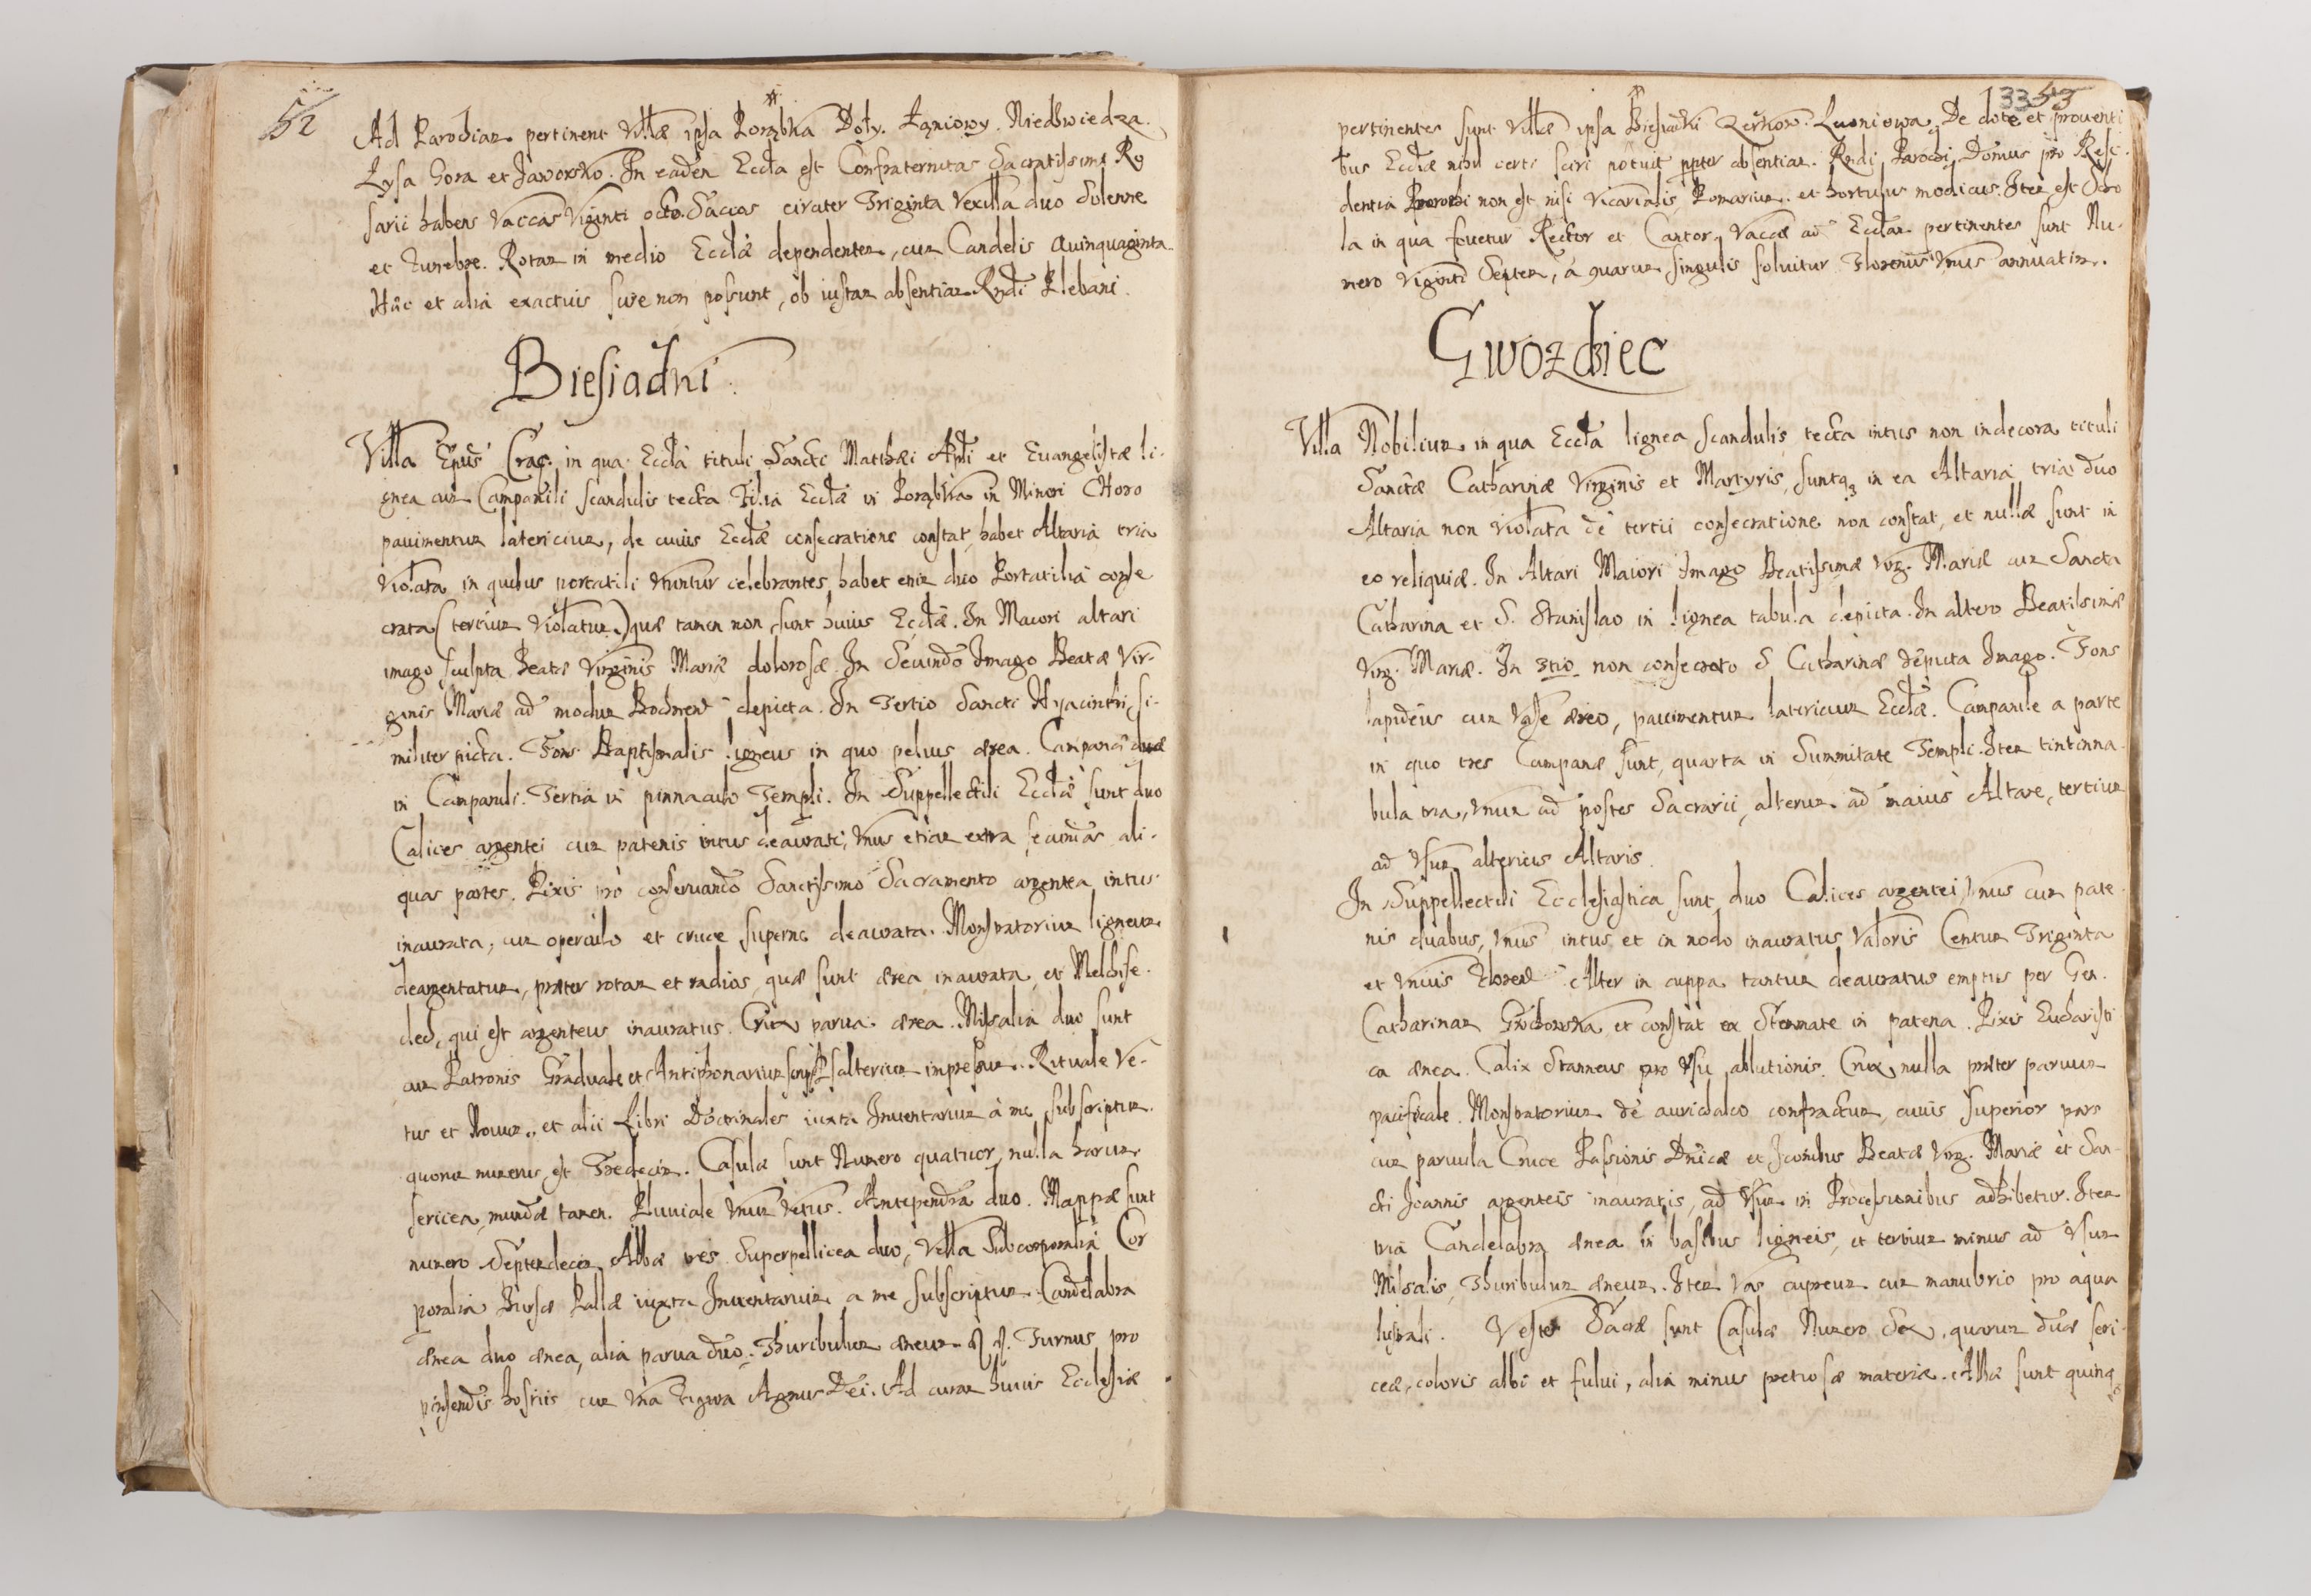 52
Ad Parochiam pertinent Villæ ipsa Porąbka Doły. Łąniowy. Niedzwiedza.
Lysa Gora et Jaworsko. In eadem Eccła est Confraternitas Sacratissimi Ro
sarii habens vaccas Viginti octo. Saccos circiter Triginta Vexilla duo Solenne
et funebre. Rotam in medio Ecclæ dependentem, cum Candelis Quinquaginta.
Hæc et alia exactius scire non possunt, ob iustam absentiam Rndi Plebani.
Biesiadni.
Villa Epūs Crac. in qua Eccła tituli Sancti Matthæi Apli et Euangelistæ li-
gnea cum Campanili scandulis tecta Filia Ecclæ in Porąbka in Minori CHoro
pauimentum latericium, de cuius Ecclæ consecratione constat, habet Altaria tria
violata in quibus portatili utuntur celebrantes, habet enim duo Portatilia conse
crata (tertium violatum.) quæ tamen non sunt huius Ecclæ. In Maiori altari
imago sculpta Beatæ Virginis Mariæ dolorosæ. In Secundo Imago Beatæ Vir-
ginis Mariæ ad modum Bochnen depicta. In Tertio Sancti Hyacinthi, si-
militer picta. Fons Baptismalis ligneus in quo peluis ærea. Campanæ duæ
in Campanili. Tertia in pinnaculo Templi. In Suppellectili Ecclæ sunt duo
Calices argentei cum patenis intus deaurati, Vnus etiam extra secundas ali-
quas partes. Pixis pro conseruando Sanctissimo Sacramento argentea intus
inaurata, cum operculo et cruce superne deaurata. Monstratorium ligneum
deargentatum, præter rotam et radios, quæ sunt ærea inaurata, et Melchise-
dech, qui est argenteus inauratus. Crux parua ærea. Missalia duo sunt
cum Patronis Graduale et Antiphonarium script Psalterium impressum. Rituale Ve-
tus et Nouum., et alii Libri Doctrinales iuxta Inuentarium à me subscriptum.
quorum numerus est Tredecim. Casulæ sunt Numero quatuor, nulla harum
sericea, mundæ tamen. Pluuiale vnum vetus. Antependia duo. Mappæ sunt
numero Septemdecim Albæ tres Superpellicea duo, Vella Subcorporalia Cor
poralia Bursæ Pallæ iuxta Inuentarium a me subscriptum. Candelabra
ænea duo ænea, alia parua duo. Thuribulum æneum. Furnus pro
pinsendis hostiis cum vna figura Agnus Dei. Ad curam huius Ecclesiæ
33 53
pertinentes sunt Villæ ipsa Biesiadki Zerkow. Luoniowa. De dote et prouenti
bus Ecclæ nihil certi sciri potuit ppter absentiam. Rndi Parochi Domus pro Resi-
dentia Parochi non est nisi Vicarialis, Pomarium. et hortulus modicus. Item est Scho
la in qua fouetur Rector et Cantor, Vaccæ ad Ecclam pertinentes sunt Nu-
mero Viginti Septem, à quarum singulis soluitur Florenus vnus annuatim.
Gwozdziec
Villa Nobilium in qua Eccła lignea scandulis tecta intus non indecora tituli
Sanctæ Catharinæ Virginis et Martyris, suntq in ea Altaria tria duo
Altaria non violata de tertii consecratione non constat, et nullæ sunt in
eo reliquiæ. In Altari Maiori Imago Beatissimæ Virg. Mariæ cum Sancta
Catharina et S. Stanislao in lignea tabula depicta. In altero Beatissimæ
Virg. Mariæ. In 3tio non consecrato S Catharinæ depicta Imago. Fons
lapideus cum Vase æreo, pauimentum latericium Ecclæ. Campanile a parte
in quo tres Campanæ sunt, quarta in Summitate Templi. Item tintinna-
bula tria, vnum ad postes Sacrarii, alterum ad maius Altare, tertium
ad vsum alterius Altaris.
In Suppellectili Ecclesiastica sunt duo Calices argentei, vnus cum pate-
nis duabus, vnus intus et in nodo inauratus Valoris Centum Triginta
et vnius Floreni. Alter in cuppa tantum deauratus emptus per Gen.
Catharinam Grochowska, et constat ex Stemmate in patena. Pixis Eucharisti
ca ænea. Calix Stanneus pro vsu ablutionis. Crux nulla præter paruum
pacificale. Monstratorium de aurichalco confractum, cuius superior pars
cum paruula Cruce Passionis Dnicæ et Iconibus Beatæ Virg. Mariæ et San-
cti Joannis argenteis inauratis, ad vsum in Processionibus adhibetur. Item
tria Candelabra ænea in basibus ligneis, et tertium minus ad vsum
Missalis, Thuribulum æneum. Item Vas cupreum cum manubrio pro aqua
lustrali. Vestes Sacræ sunt Casulæ Numero Sex, quarum duæ seri-
ceæ, coloris albi et fului, alia minus pretiosæ materiæ. Albæ sunt quinq